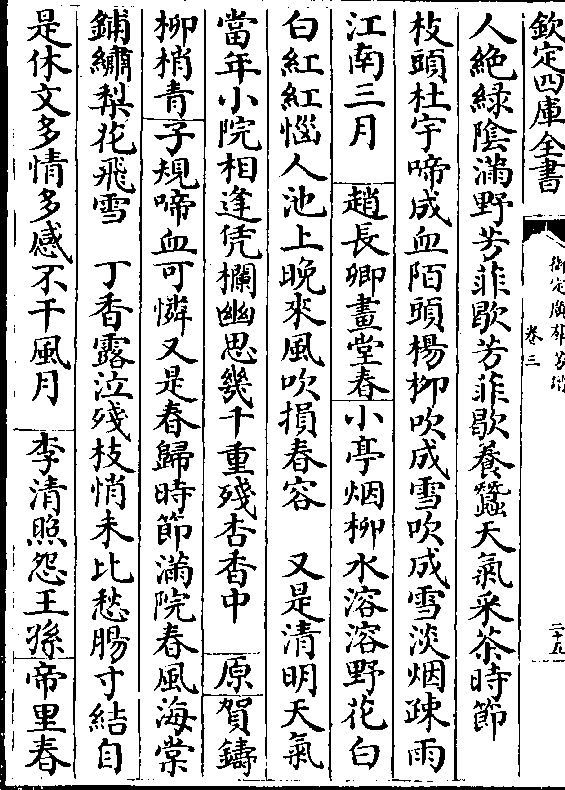 欽定四庫全書
御定廣羣芳譜
卷三
二十五
人絶緑陰滿野芳菲歇芳菲歇養蠶天氣采茶時節
枝頭杜宇啼成血陌頭楊柳吹成雪吹成雪淡烟疎雨
江南三月 趙長卿畫堂春小亭烟柳水溶溶野花白
白紅紅惱人池上晩來風吹損春容 又是清明天氣
當年小院相逢凭欄幽思幾千重殘杏香中 原賀鑄
柳梢青子規啼血可憐又是春歸時節滿院春風海棠
鋪繡梨花飛雪 丁香露泣殘枝悄未比愁腸寸結自
是休文多情多感不干風月 李清照怨王孫帝里春